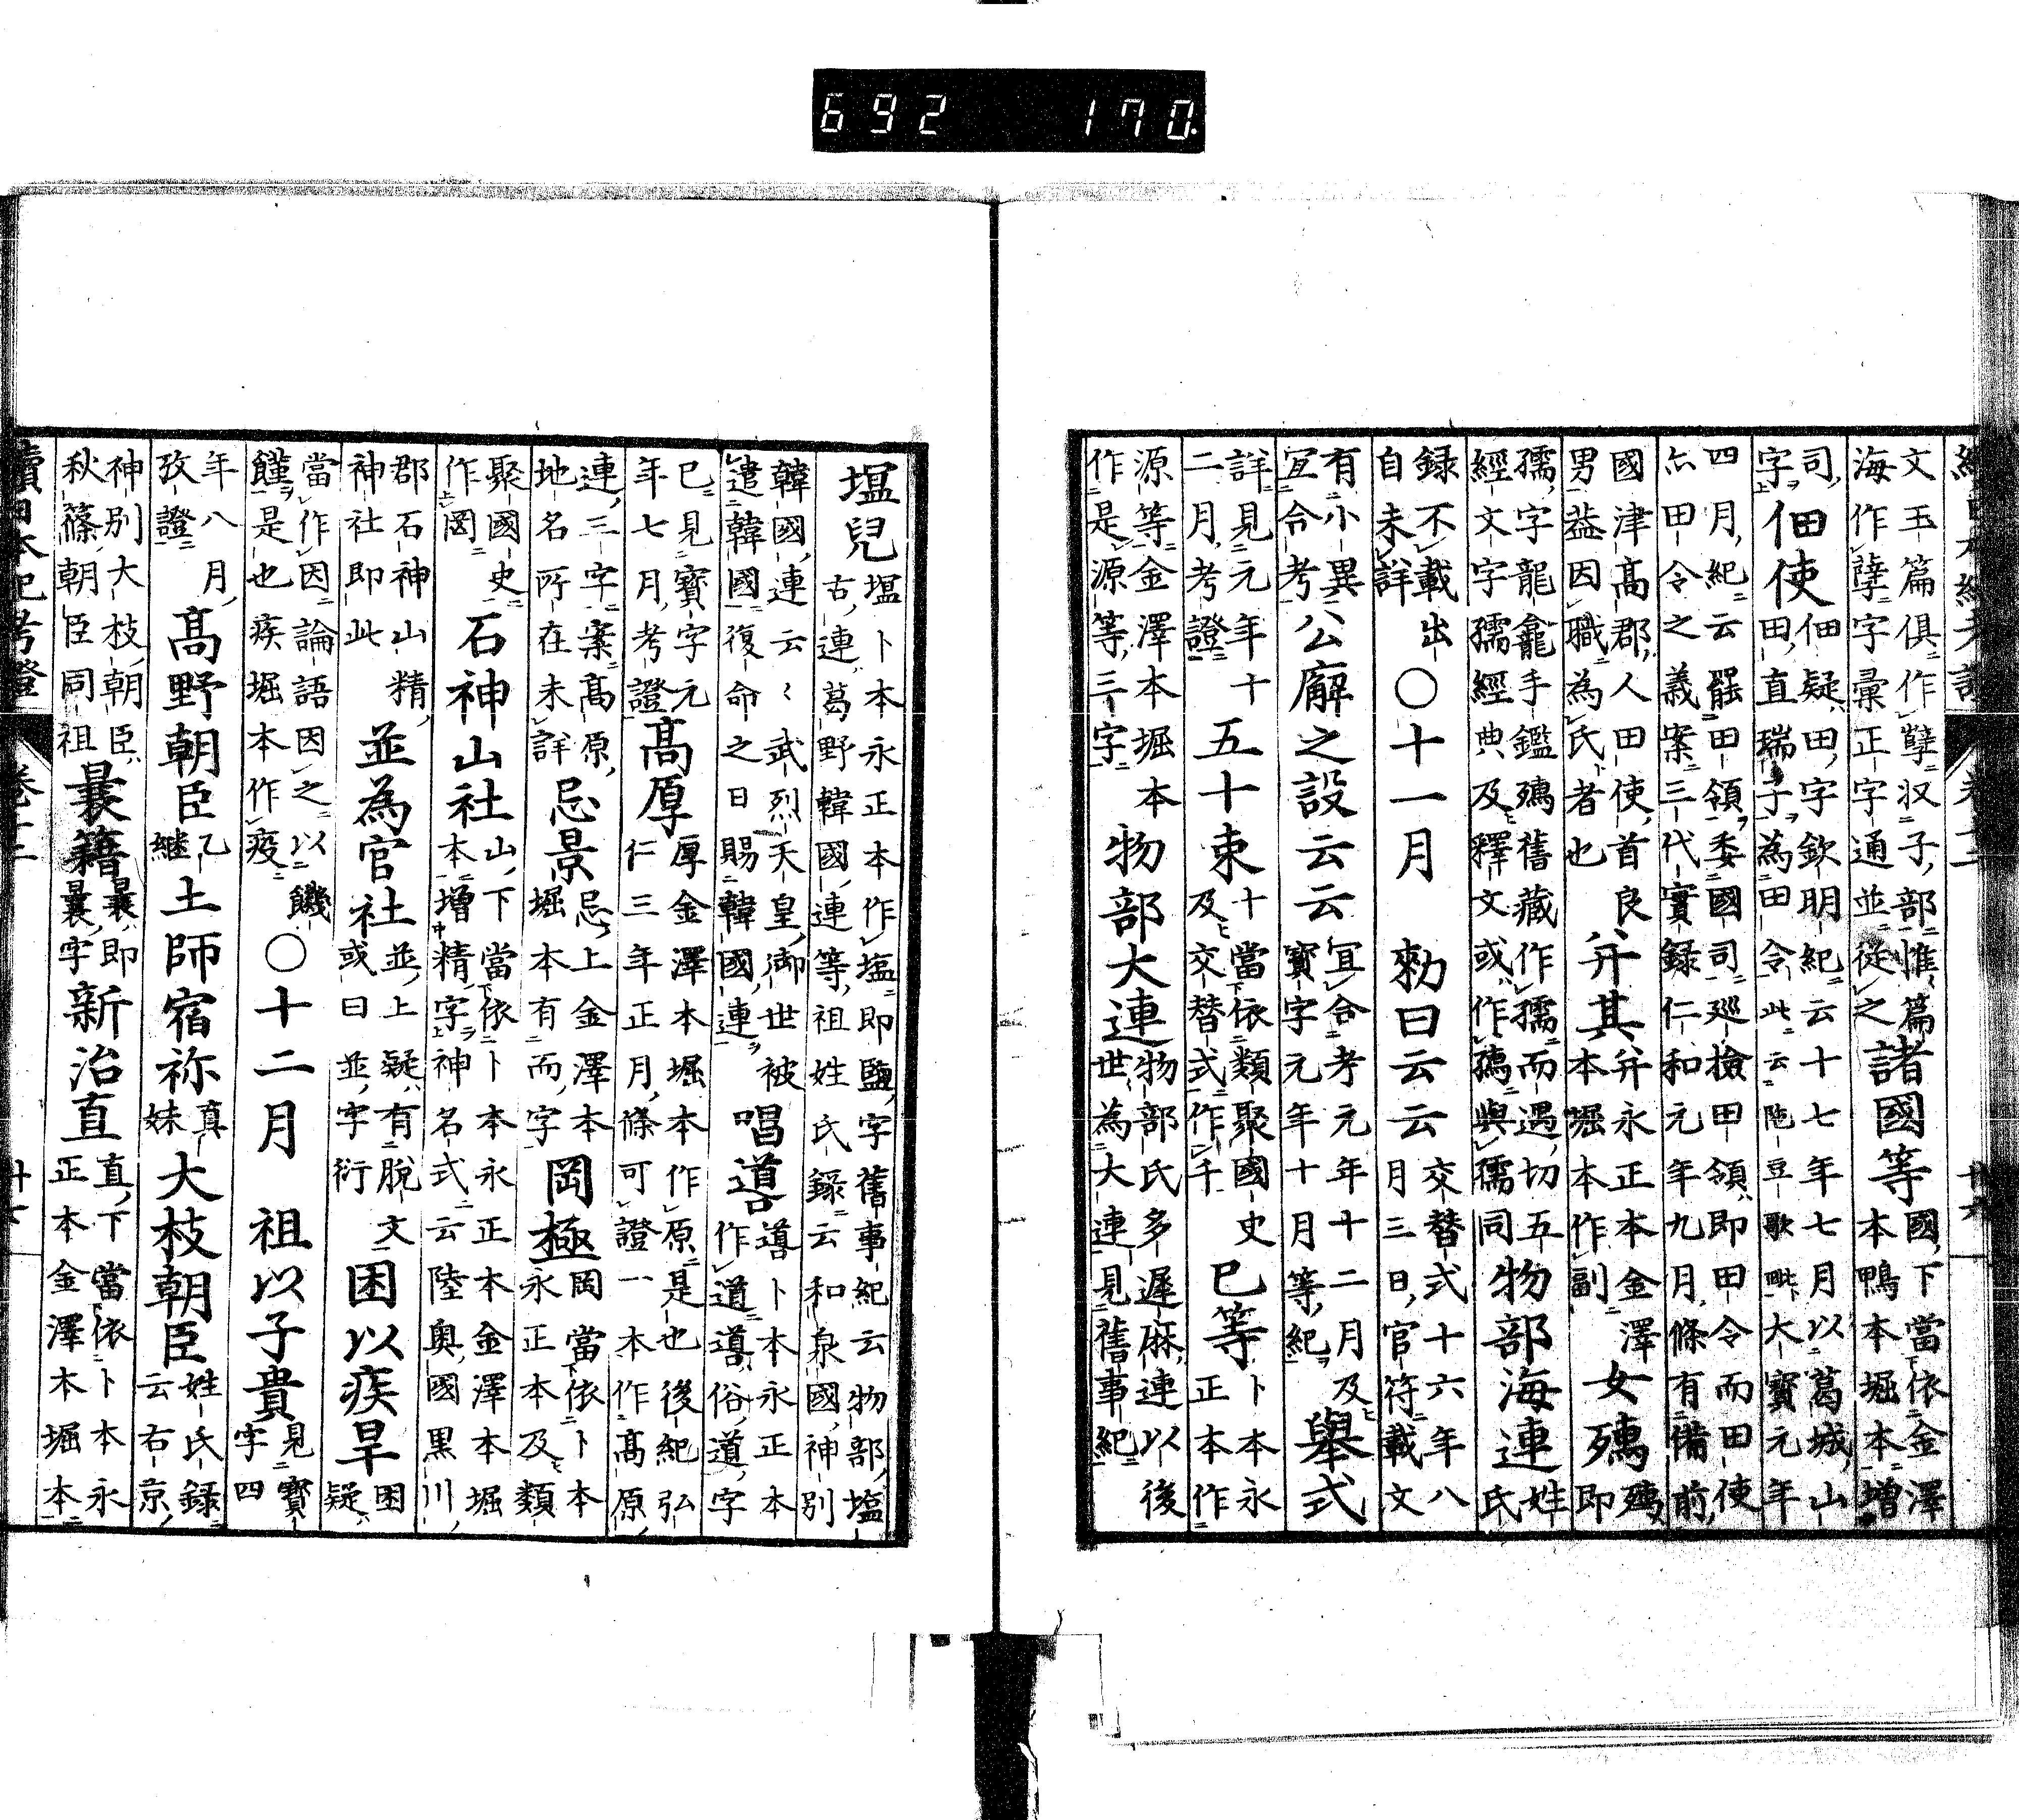 692 170.
文玉篇俱作孽汉子部惟篇諸國等國下當依金澤
海作孽字彙正字通並從之本鴨本堀本增
司字佃使佃疑田字欽明紀云十七年七月以葛城山
田直瑞子為田令此云陁豆歌毗大寶元年
四月紀云罷田領委國司巡撿田領即田令而田使
六田令之義案三代實録仁和元年九月條有備前
國津高郡人田使首良弁其弁永正本金澤女殦殦
男益因職為氏者也本堀本作副即
孺字龍龕手鑑殦舊藏作孺而遇切五物部海連姓
經文字孺經典及釋文或作殦與孺同氏
録不載出〇十一月勅曰云云交替式十六年八
自未詳月三日官符載文
有小異公廨之設云云冝合考元年十二月及舉式
冝合考寳字元年十月等紀
詳見元年十五十束十當依類聚國史巳等卜本永
二月考證及交替式作千正本作
源等金澤本堀本物部大連物部氏多遲麻連以後
作是源等三字世為大連見舊事紀
塭兒塭卜本永正本作塩即鹽字舊事紀云物部塩
古連葛野韓國連等祖姓氏録云和泉國神別
韓國連云々武烈天皇御世被唱導導卜本永正本
遣韓國復命之日賜韓國連作道導俗道字
巳見寳字元高厚厚金澤本堀本作原是也後紀弘
年七月考證仁三年正月條可證一本作高原
連三字案高原忌景忌上金澤本岡極岡當依卜本
地名所在未詳堀本有而字永正本及類
聚國史石神山社山下當依卜本永正本金澤本堀
作岡本增精字神名式云陸奥國黒川
郡石神山精並為官社並上疑有脱文困以疾旱困
神社即此或曰並字衍疑
當作因論語因之以饑〇十二月祖以子貴見寳
饉是也疾堀本作疫字四
年八月高野朝臣乙土師宿祢真大枝朝臣姓氏録
攷證継妹云右京
神別大枝朝臣曩籍曩即新治直直下當依卜本永
秋篠朝臣同祖曩字正本金澤本堀本
續日本紀考證 卷十二 廿七